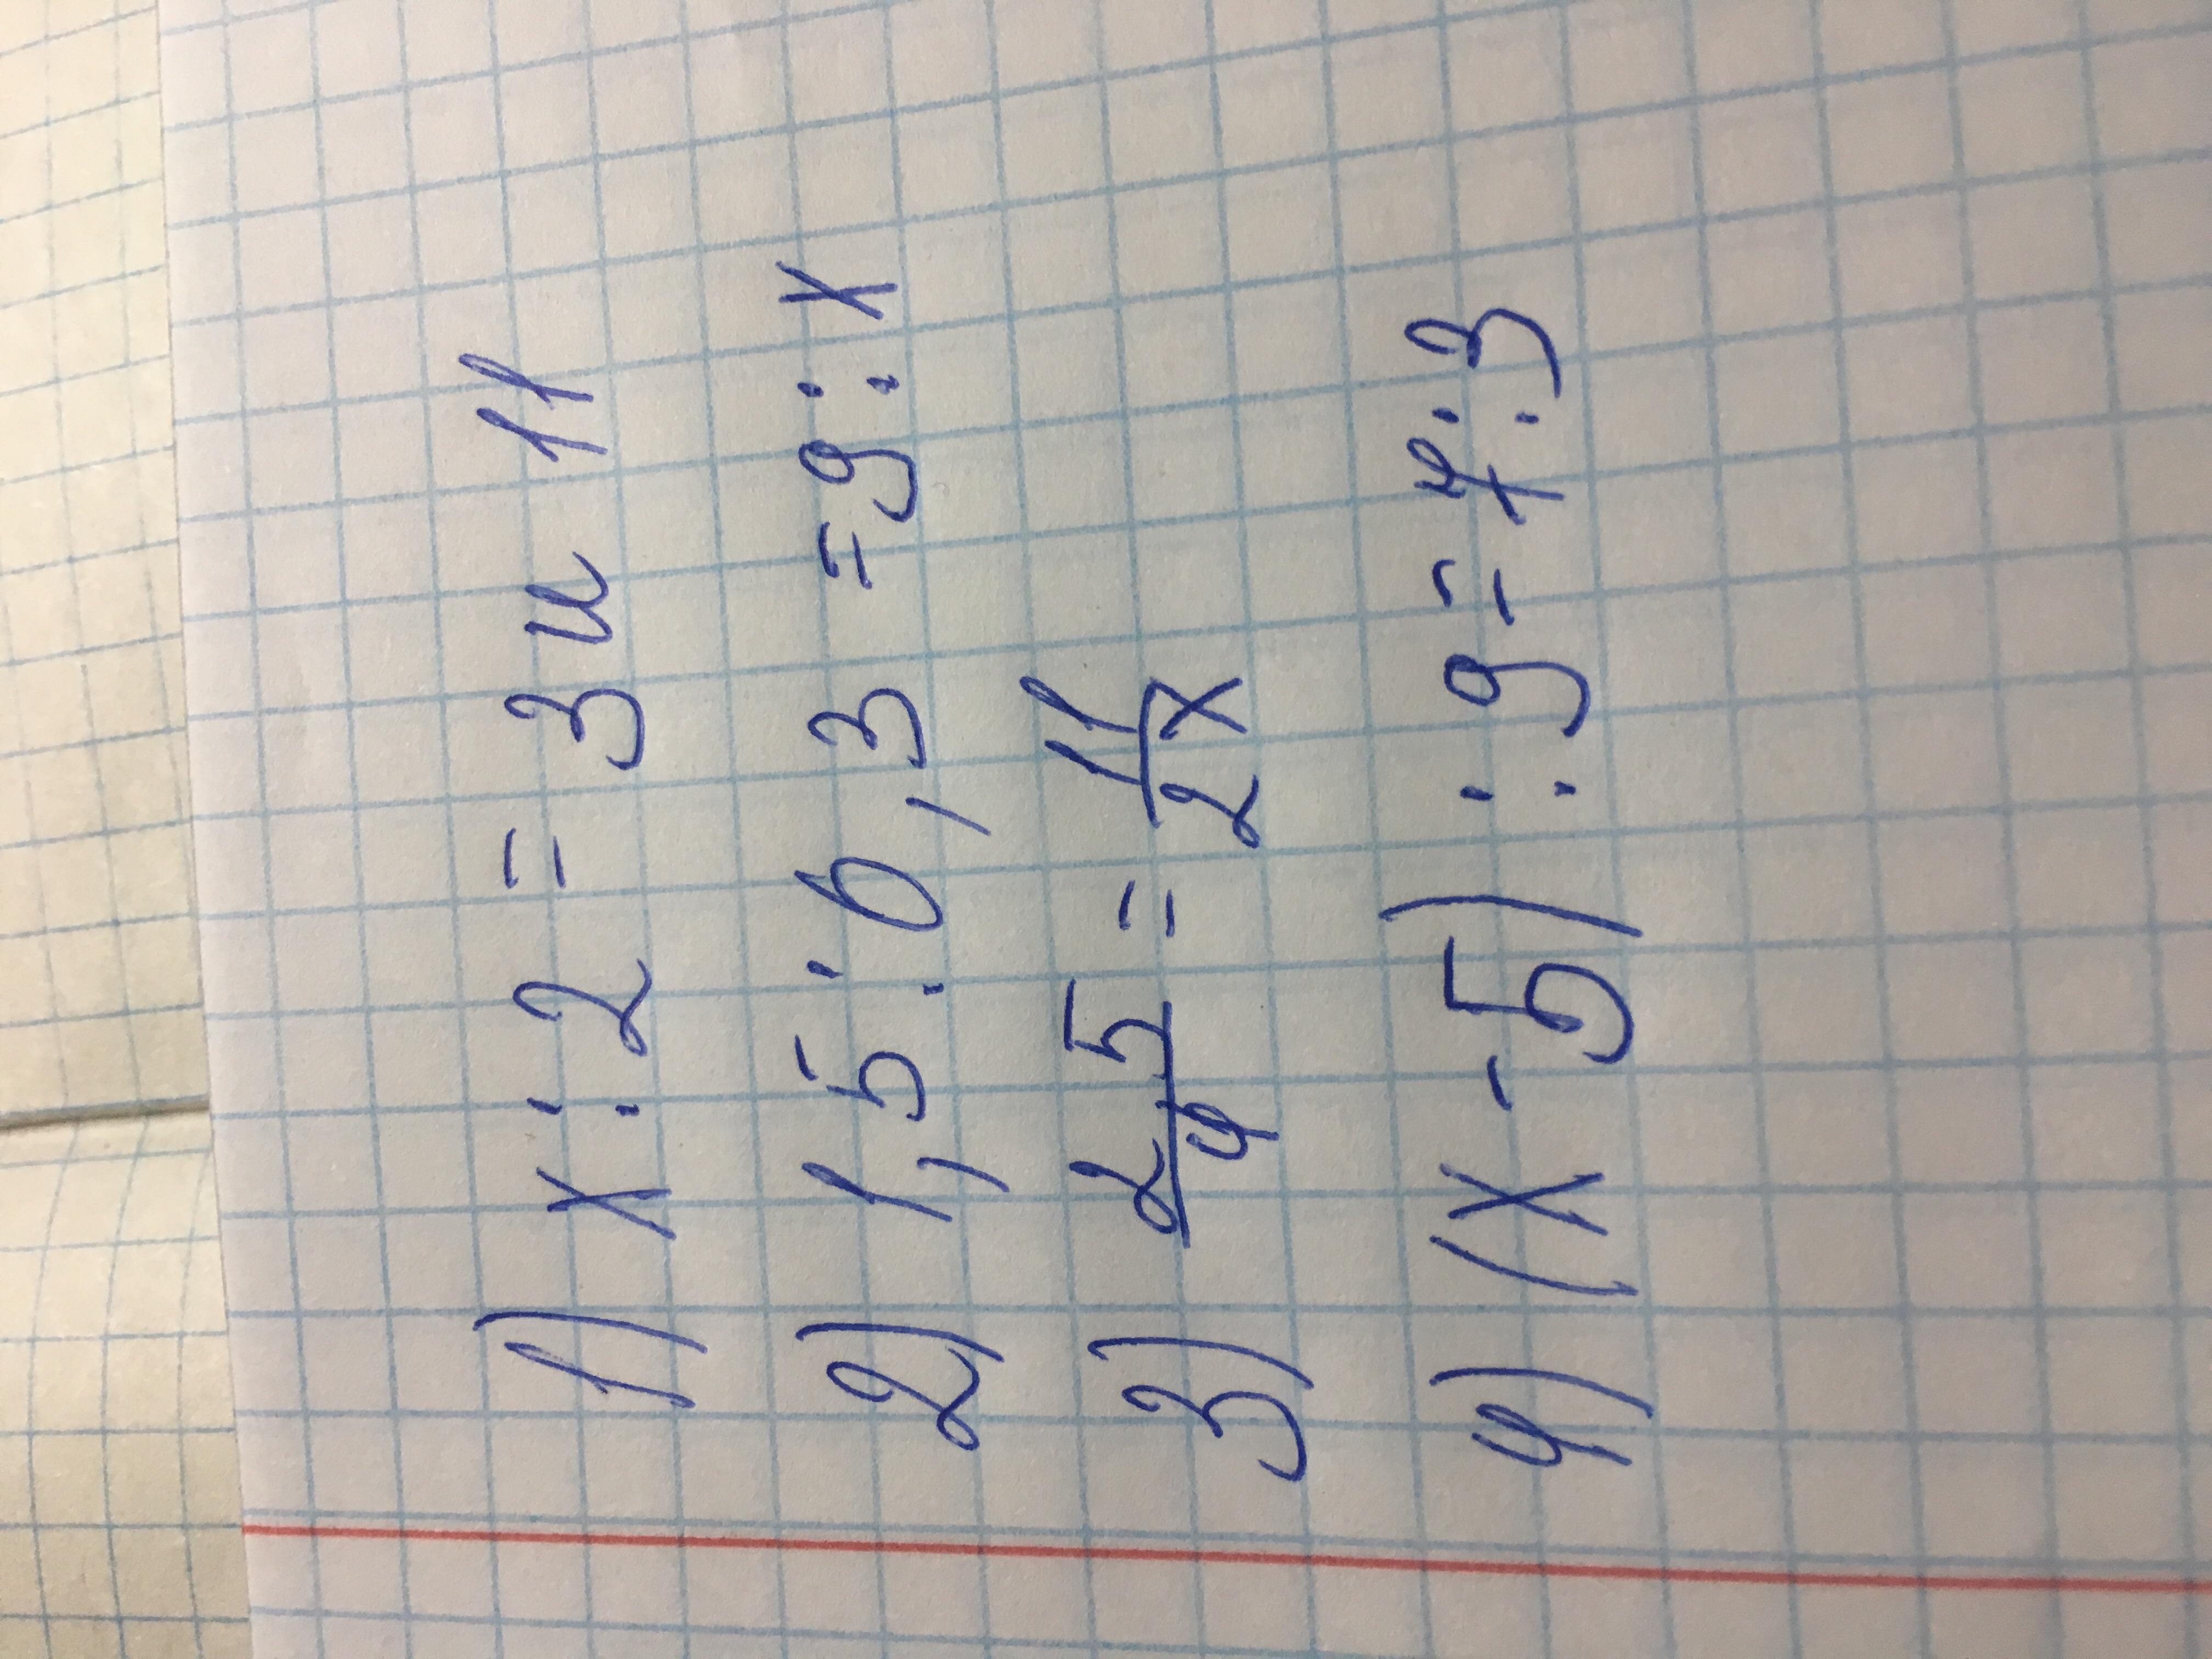 1) x : 2 = 3 и 11
2) 1,5 : 0,3 = 9 : x
3) 25/4 = 11/2x
4) (x - 5) : 9 = 7 : 3